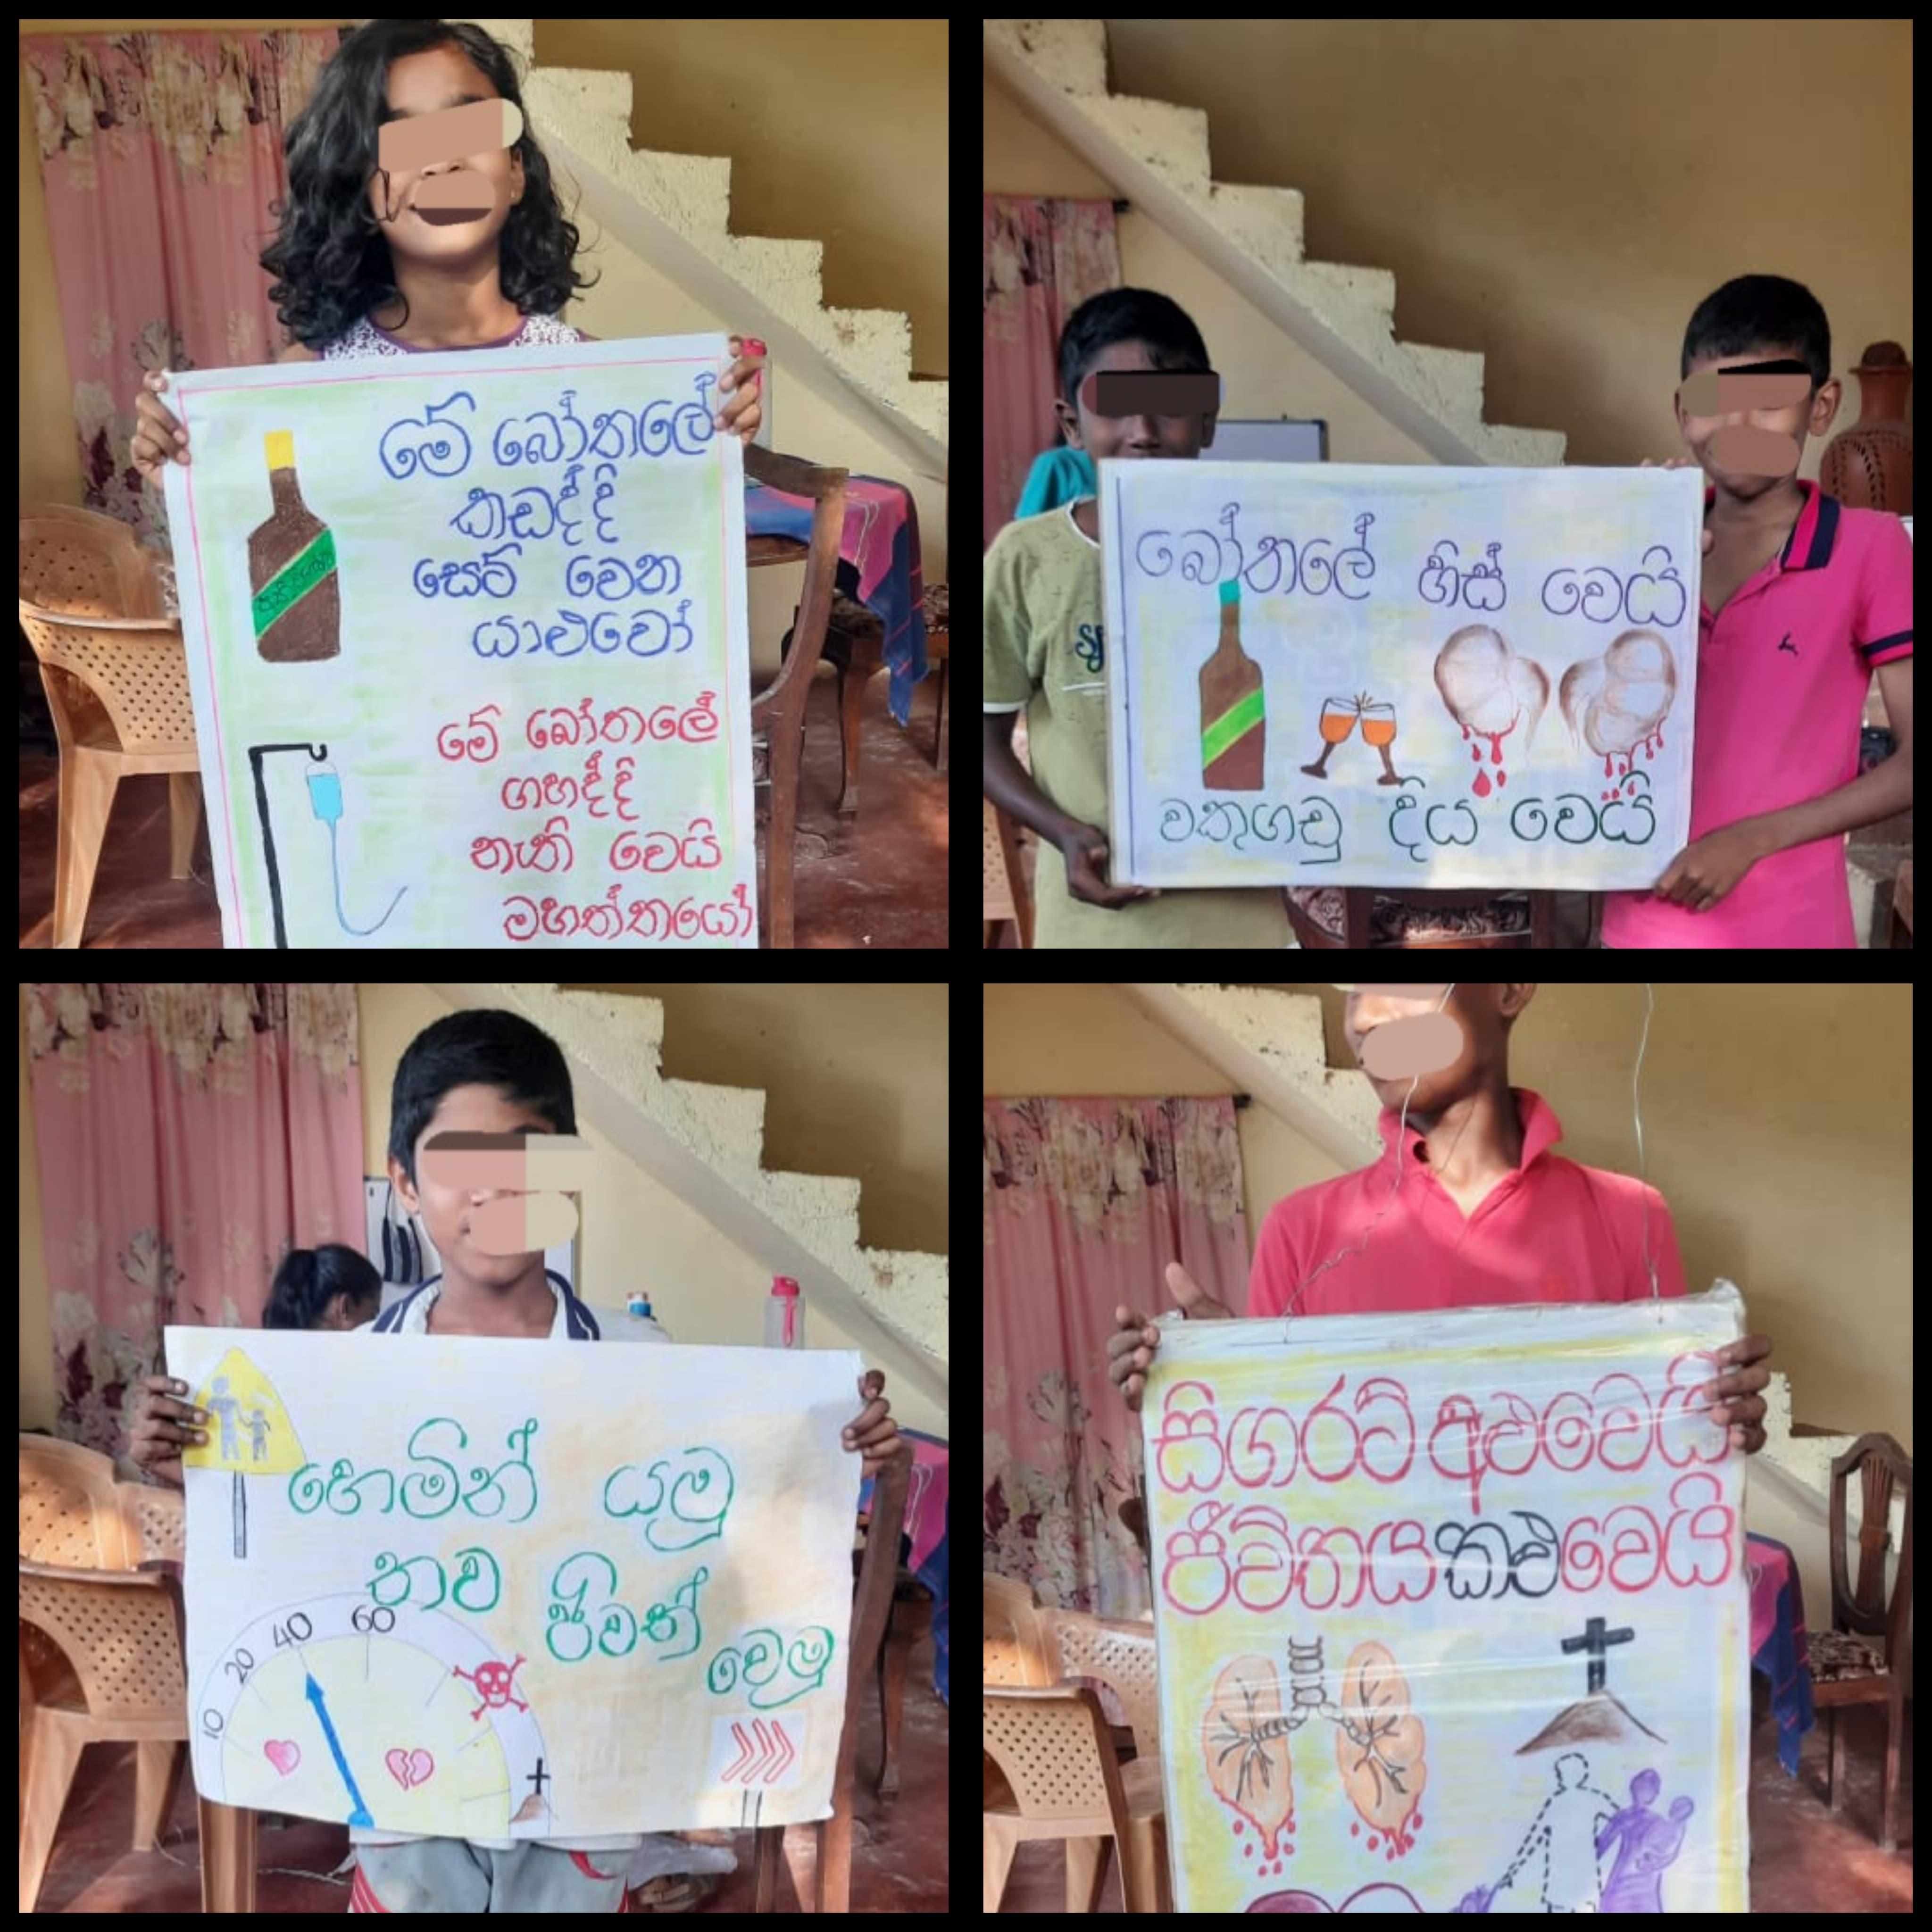 මේ බෝතලේ
කඩද්දි
සෙට් වෙන
යාළුවෝ
මේ බෝතලේ
ගහද්දි
නැති වෙයි
මහත්තයෝ
බෝතලේ හිස් වෙයි
වකුගඩු දිය වෙයි
හෙමින් යමු
තව ජීවත්
වෙමු
10 20 40 60
සිගරට් අළුවෙයි
ජීවිතයකළුවෙයි